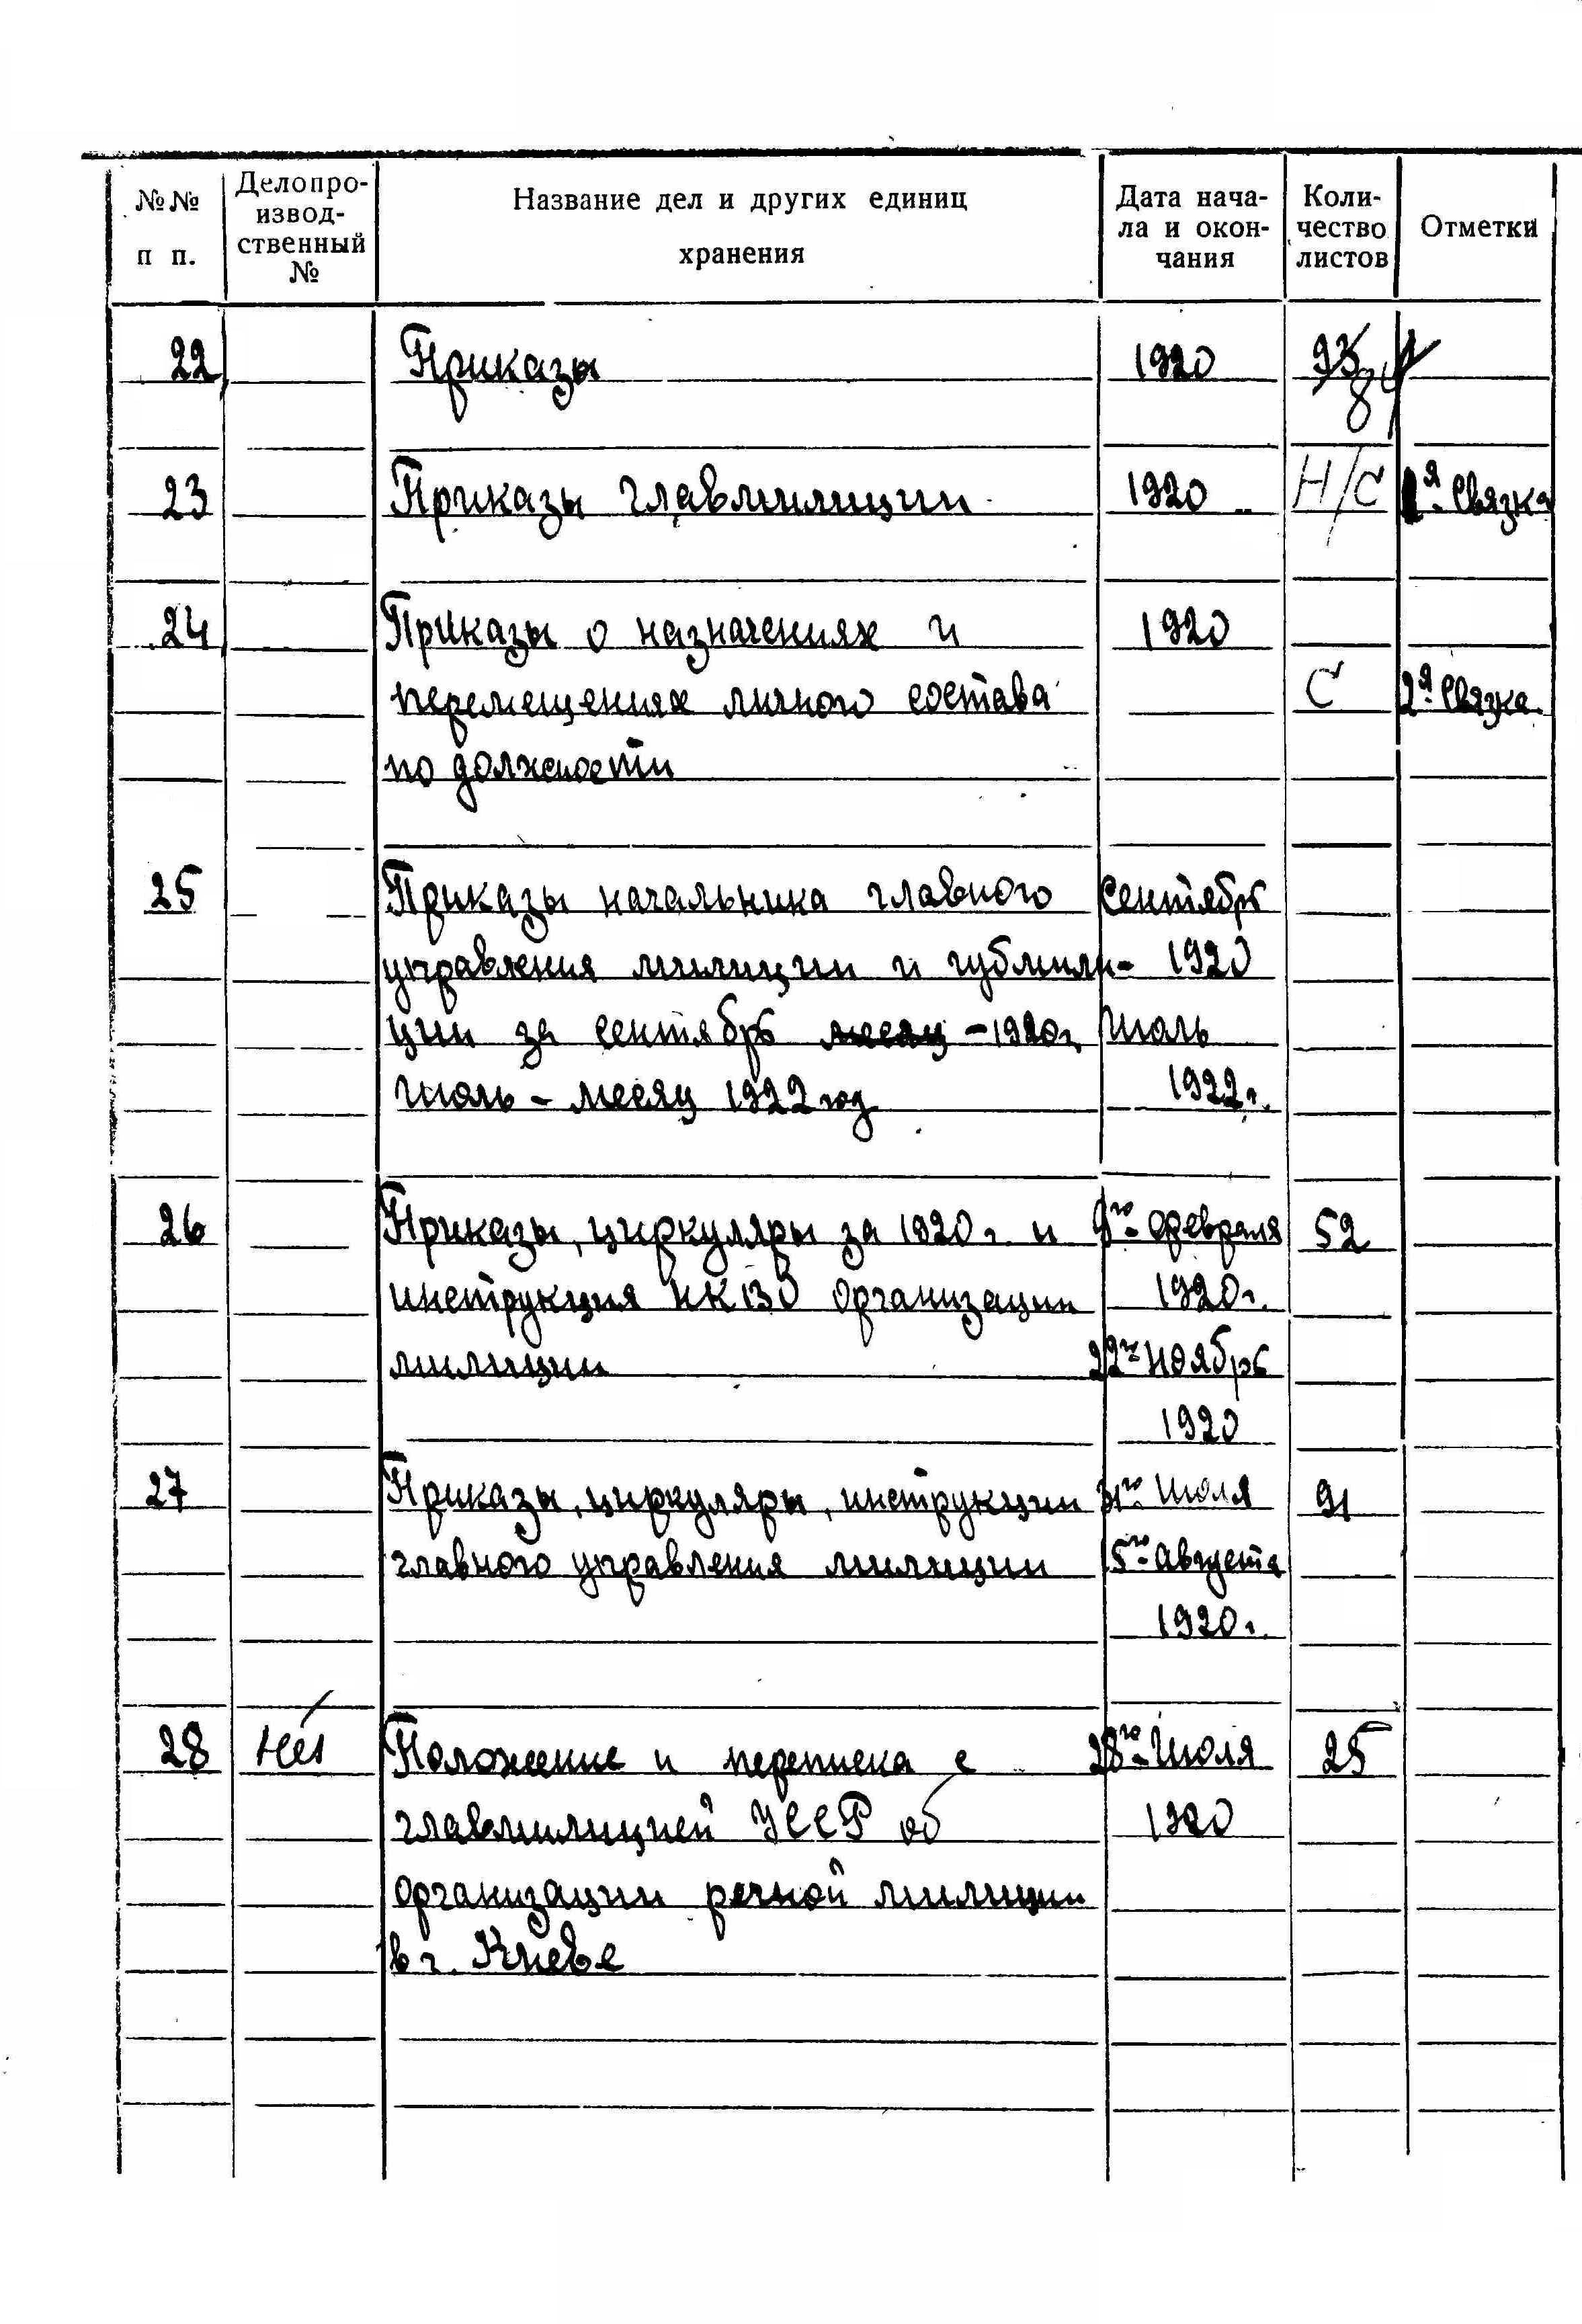 №№ п п.
Делопро-
извод-
ственный
№
Название дел и других единиц
хранения
Дата нача-
ла и окон-
чания
Коли-
чество
листов
Отметки
22 Приказы 1920 93
84
23 Приказы главмилиции 1920 Н/С 1я связка
24 Приказы о назначениях и 1920
перемещениях личного состава С 2я связка
по должности
25 Приказы начальника главного сентябрь
управления милиции и губмили- 1920
ции за сентябрь месяц - 1920г. июль
июль - месяц 1922 год 1922г.
26 Приказы, циркуляры за 1920 г. и 9го февраля 52
инструкция организации 1920г.
милиции 22го ноябрь
1920
27 Приказы, циркуляры, инструкции 31го июля 91
главного управления милиции 15го августа
1920г.
28 нет Положение и переписка с 28го июля 25
главмилицией УССР об 1920
организации речной милиции
в г. Киеве